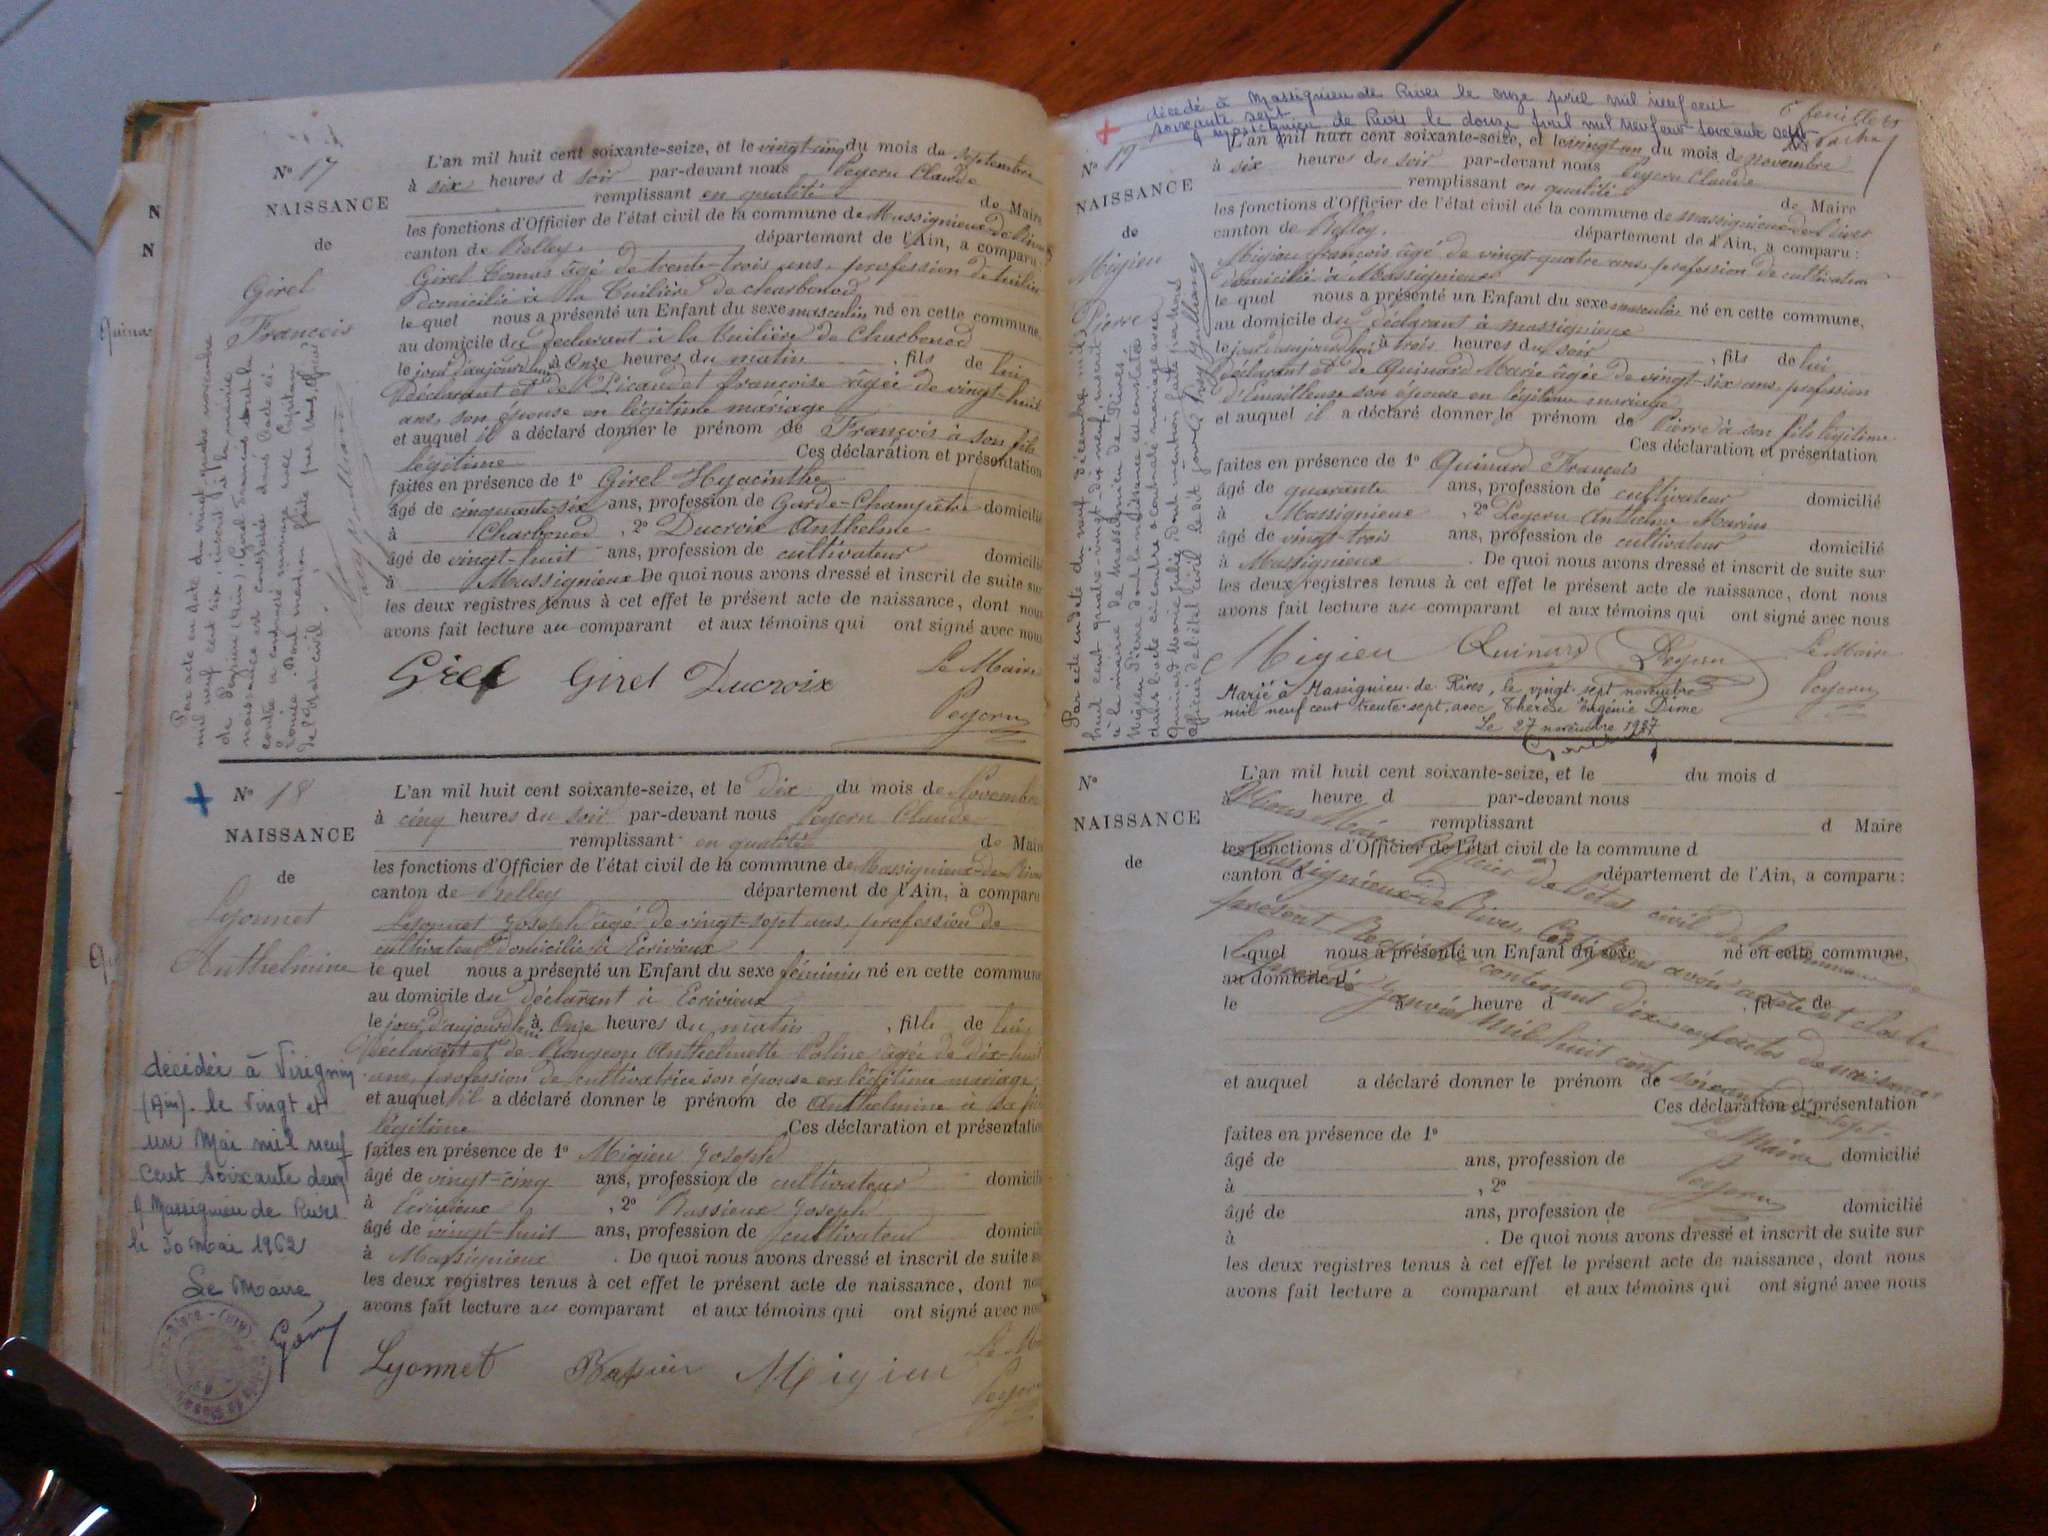 N° 17
NAISSANCE
de
Girel
François
L'an mil huit cent soixante-seize, et le vingt-cinq du mois de Septembre
à six heures d soir par-devant nous Peycru Claude
remplissant en qualité de Maire
les fonctions d'Officier de l'état civil de la commune de Massignieux-de-Rives
canton de Belley. département de l'Ain, a comparu:
Girel Tomas âgé de trente-trois ans, profession de tuilier
domicilié à la Tuilière de Charbonod
le quel nous a présenté un Enfant du sexe masculin né en cette commune,
au domicile du déclarant à la Tuilière de Charbonod
le jour d'aujourd'hui à Onze heures du matin , fils de lui
déclarant et de Picaudet françoise âgée de vingt-huit
ans, son épouse en légitime mariage
et auquel il a déclaré donner le prénom de François à son fils
légitime Ces déclaration et présentation
faites en présence de 1° Girel Hyacinthe
âgé de cinquante-six ans, profession de Garde-Champêtre domicilié
à Charbonod , 2° Ducroix Anthelme
âgé de vingt-huit ans, profession de cultivateur domicilié
à Massignieux De quoi nous avons dressé et inscrit de suite sur
les deux registres tenus à cet effet le présent acte de naissance, dont nous
avons fait lecture au comparant et aux témoins qui ont signé avec nous
Girel Girel Ducroix Le Maire
Peycru
Par acte en date du vingt quatre novembre
mil neuf cent six, inscrit à la mairie
de Peyrieu (Ain), Girel François dont la
naissance est constatée dans l'acte ci-
contre a contracté mariage avec
Louise. Dont mention faite par nous, officier
de l'état-civil.
N° 18
NAISSANCE
de
Lyonnet
Anthelmine
L'an mil huit cent soixante-seize, et le dix du mois de Novembre
à cinq heures du soir par-devant nous Peycru Claude
remplissant en qualité de Maire
les fonctions d'Officier de l'état civil de la commune de Massignieux-de-Rives
canton de Belley département de l'Ain, a comparu
Lyonnet Joseph âgé de vingt-sept ans, profession de
cultivateur domicilié à Ecrivieux
le quel nous a présenté un Enfant du sexe féminin né en cette commune
au domicile du déclarant à Ecrivieux
le jour d'aujourd'hui à Onze heures du matin , fille de lui
déclarant et de Anthelmette Poline âgée de dix-huit
ans, profession de cultivatrice son épouse en légitime mariage
et auquel il a déclaré donner le prénom de Anthelmine à sa fille
légitime Ces déclaration et présentation
faites en présence de 1° Migieu Joseph
âgé de vingt-cinq ans, profession de cultivateur domicilié
à Ecrivieux , 2° Bassieux Joseph
âgé de vingt-huit ans, profession de cultivateur domicilié
à Massignieux . De quoi nous avons dressé et inscrit de suite sur
les deux registres tenus à cet effet le présent acte de naissance, dont nous
avons fait lecture au comparant et aux témoins qui ont signé avec nous
Lyonnet Migieu Le Maire
Peycru
décédée à Virignin
(Ain). le vingt et
un Mai mil neuf
cent soixante deux
A Massignieu de Rives
le 30 mai 1962
Le Maire,
décédé à Massignieu de Rives le onze avril mil neuf cent
soixante sept
A Massignieu de Rives le douze avril mil neuf cent soixante sept
6e feuillet
N° 19
NAISSANCE
de
Migieu
Pierre
L'an mil huit cent soixante-seize, et le vingt-un du mois de novembre
à six heures du soir par-devant nous Peycru Claude
remplissant en qualité de Maire
les fonctions d'Officier de l'état civil de la commune de Massignieux-de-Rives
canton de Belley. département de l'Ain, a comparu:
Migieu françois âgé de vingt-quatre ans, profession de cultivateur
domicilié à Massignieux
le quel nous a présenté un Enfant du sexe masculin né en cette commune,
au domicile du déclarant à Massignieux
le jour d'aujourd'hui à trois heures du soir , fils de lui
déclarant et de Quinard Marie âgée de vingt-six ans, profession
d'Emailleuse son épouse en légitime mariage
et auquel il a déclaré donner le prénom de Pierre à son fils légitime
Ces déclaration et présentation
faites en présence de 1° Quinard François
âgé de quarante ans, profession de cultivateur domicilié
à Massignieux , 2° Peycru Anthelme Marius
âgé de vingt-trois ans, profession de cultivateur domicilié
à Massignieux . De quoi nous avons dressé et inscrit de suite sur
les deux registres tenus à cet effet le présent acte de naissance, dont nous
avons fait lecture au comparant et aux témoins qui ont signé avec nous
Migieu Quinard Peycru Le Maire
Peycru
Marié à Massignieu-de-Rives, le vingt-sept novembre
mil neuf cent trente-sept, avec Thérèse Eugénie Dime
Le 27 novembre 1937
Par acte en date du neuf décembre mil
huit cent quatre-vingt-dix neuf, inscrit
à la mairie de Massignieu de Rives
Migieu Pierre dont la naissance est constatée
dans l'acte ci-contre a contracté mariage avec
Quinard Marie Julie dont mention faite par nous
officier de l'état civil le dit jour
N°
NAISSANCE
de
L'an mil huit cent soixante-seize, et le du mois d
à heure d par-devant nous
remplissant d Maire
les fonctions d'Officier de l'état civil de la commune d
canton d département de l'Ain, a comparu:
l quel nous a présenté un Enfant du sexe né en cette commune,
au domicile d
le à heure d , fil de
et auquel a déclaré donner le prénom de
Ces déclaration et présentation
faites en présence de 1°
âgé de ans, profession de domicilié
à , 2°
âgé de ans, profession de domicilié
à . De quoi nous avons dressé et inscrit de suite sur
les deux registres tenus à cet effet le présent acte de naissance, dont nous
avons fait lecture a comparant et aux témoins qui ont signé avec nous
Nous Maire Officier de l'état civil de la commune de
Massignieux-de-Rives, Certifions avoir arrêté et clos le
présent Registre contenant dix-neuf actes de naissances
le premier Janvier mil huit cent soixante-dix-sept.
Le Maire
Peycru